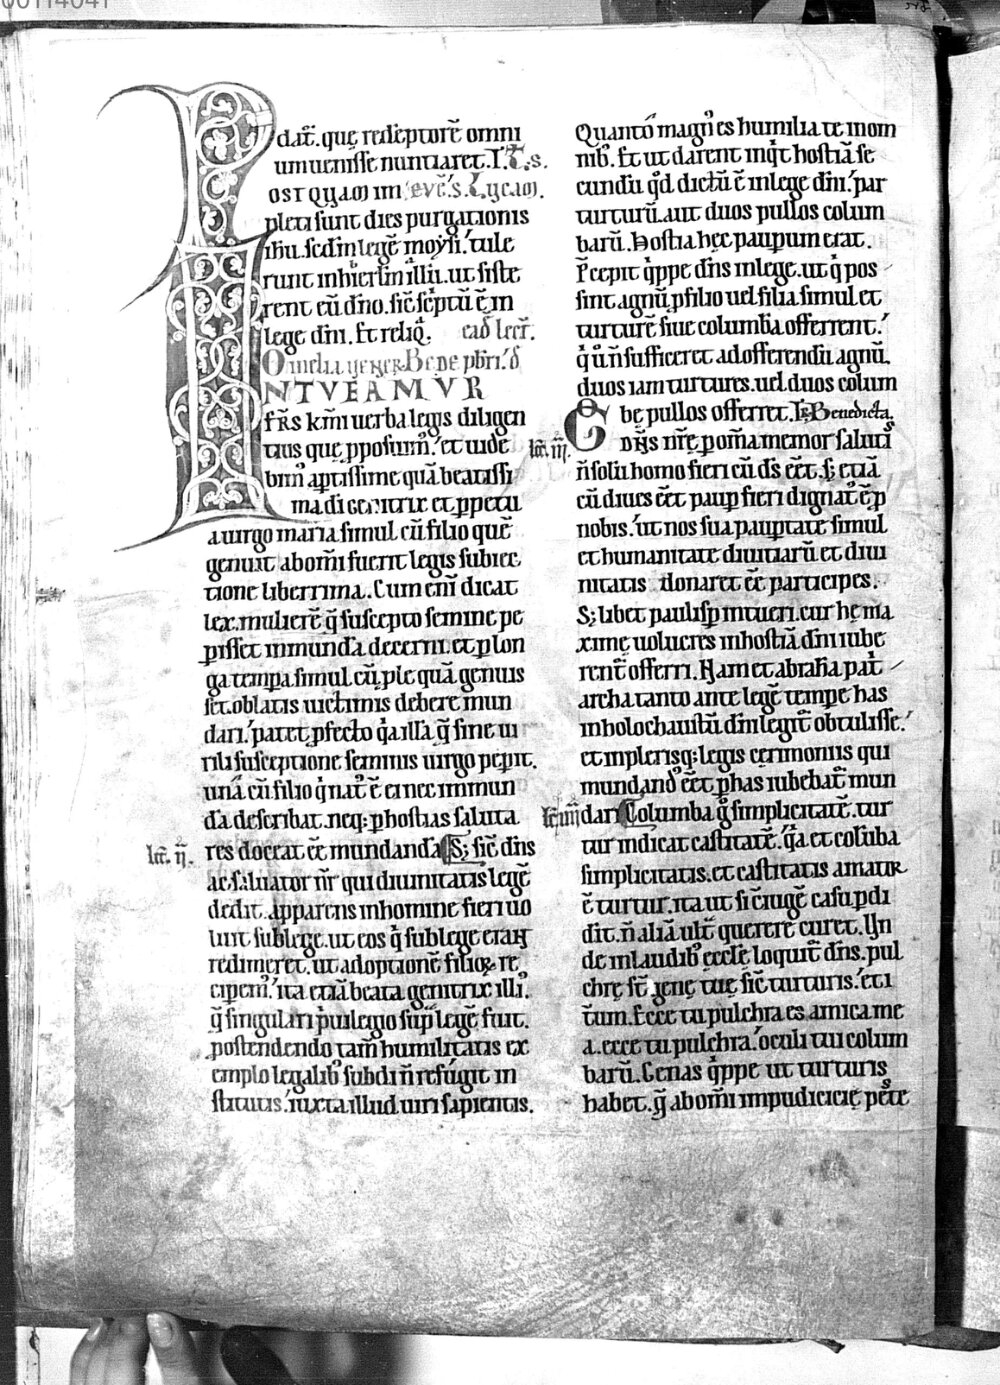 00114041
dat᷑. quę redēptorē omni
um uenisse nuntiaret.
OST QUAM IM euc̄. s. Lucam.
pleti sunt dies purgationis
ihu. sedm̄ legē moẏsi. tule
runt in hierlm̄ illū. ut siste
rent eū dn̄o. sic̄ scͥptū ē in
lege dn̄i. Et reliqͣ. eađ lect̄.
Omelia uener Bede pbri. đ
INTUEAMUR
fr̄s km̄i uerba legis diligen
tius quę pposuim᷒. et uide
bim᷒ aptissime quā beatissi
ma di genitrix et ppetu
a uirgo maria simul cū filio quē
genuit ab om̄i fuerit legis subiec
tione liberrima. Cum eni᷒ dicat
lex. mulierē q̄ suscepto semine pe
pisset inmundā decerni. et plon
ga tempa simul cū ple quā genuis
set. oblatis uictimis debere mun
dari. patet pfecto qͣ illa q̄ sine ui
rili susceptione seminis uirgo pepit.
unā cū filio qͥ nat᷒ ē ei nec inmun
da describat. neq; p hostias saluta
lec̄. ii. res doceat eē mundanda S; sic̄ dn̄s
ac saluator nr̄ qui diuinitatis legē
dedit. apparens in homine fieri uo
luit sub lege. ut eos qͥ sub lege erant
redimeret. ut adoptionē filioꝝ re
ciperem᷒. ita etiā beata genitrix illi᷒.
q̄ singulari pͥuilegio supͣ legē fuit.
p ostendendo tam̄ humilitatis ex
emplo legalib᷒ subdi n̄ refugit in
stitutis. iuxta illud uiri sapientis.
Quanto magn᷒ es humilia te in om
nib᷒. Et ut darent inqͥt hostiā se
cundū qđ dictū ē in lege dn̄i. par
turturū. aut duos pullos colum
barū. Hostia hec paupum erat.
Pͥcepit qͥppe dn̄s in lege. ut qͥ pos
sint agnū p filio uel filia simul et
turturē siue columbā offerrent.
qͥ ū n̄ sufficeret ad offerendū agnū.
duos iam turtures. uel duos colum
bę pullos offerret. Benedicta.
lec̄. iii. Eͬ DN̄S nr̄ę pom̄a memor saluti᷒
n̄ solū homo fieri cū ds̄ eēt. s; etiā
cū diues eēt paup fieri dignat᷒ ē p
nobis. ut nos sua paupertate simul
et humanitate diuitiarū et diui
nitatis donaret eē participes.
S; libet paulisp intueri. cur hę ma
ximę uolucres in hostiā dn̄i iube
rent᷑ offerri. Nam et abraham pat
archa tanto ante legē tempe has
in holochaustū dn̄i legit᷑ obtulisse.
et in plerisq; legis cerimoniis qui
mundand᷒ eēt p has iubebat᷑ mun
lec̄. iiii dari Columba gͦ simplicitatē. tur
tur indicat castitatē. qͣ et colūba
simplicitatis. et castitatis amator
ē turtur. ita ut si ciugē casu pdi
dit. n̄ aliā ult᷑ querere curet. Vn
de in laudib᷒ eccłę loquit᷑ dn̄s. pul
chrę st̄ genę tuę sic̄ turturis. et i
t᷑um. Ecce tu pulchra es amica me
a. ecce tu pulchra. oculi tui colum
barū. Genas qͥppe ut turturis
habet. q̄ ab om̄i impudicicię